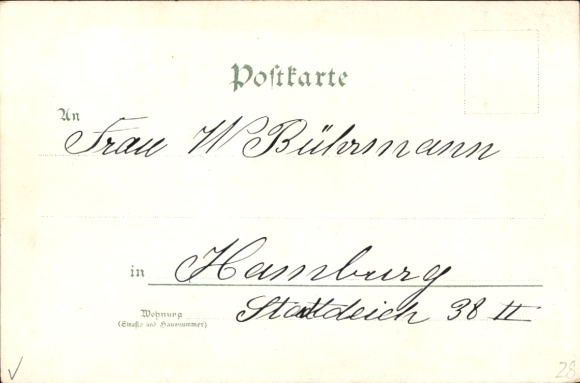 Postkarte
An
Frau W Bührmann
in Hamburg
Wohnung
(Straße und Hausnummer)
Stattdeich 38 II
28